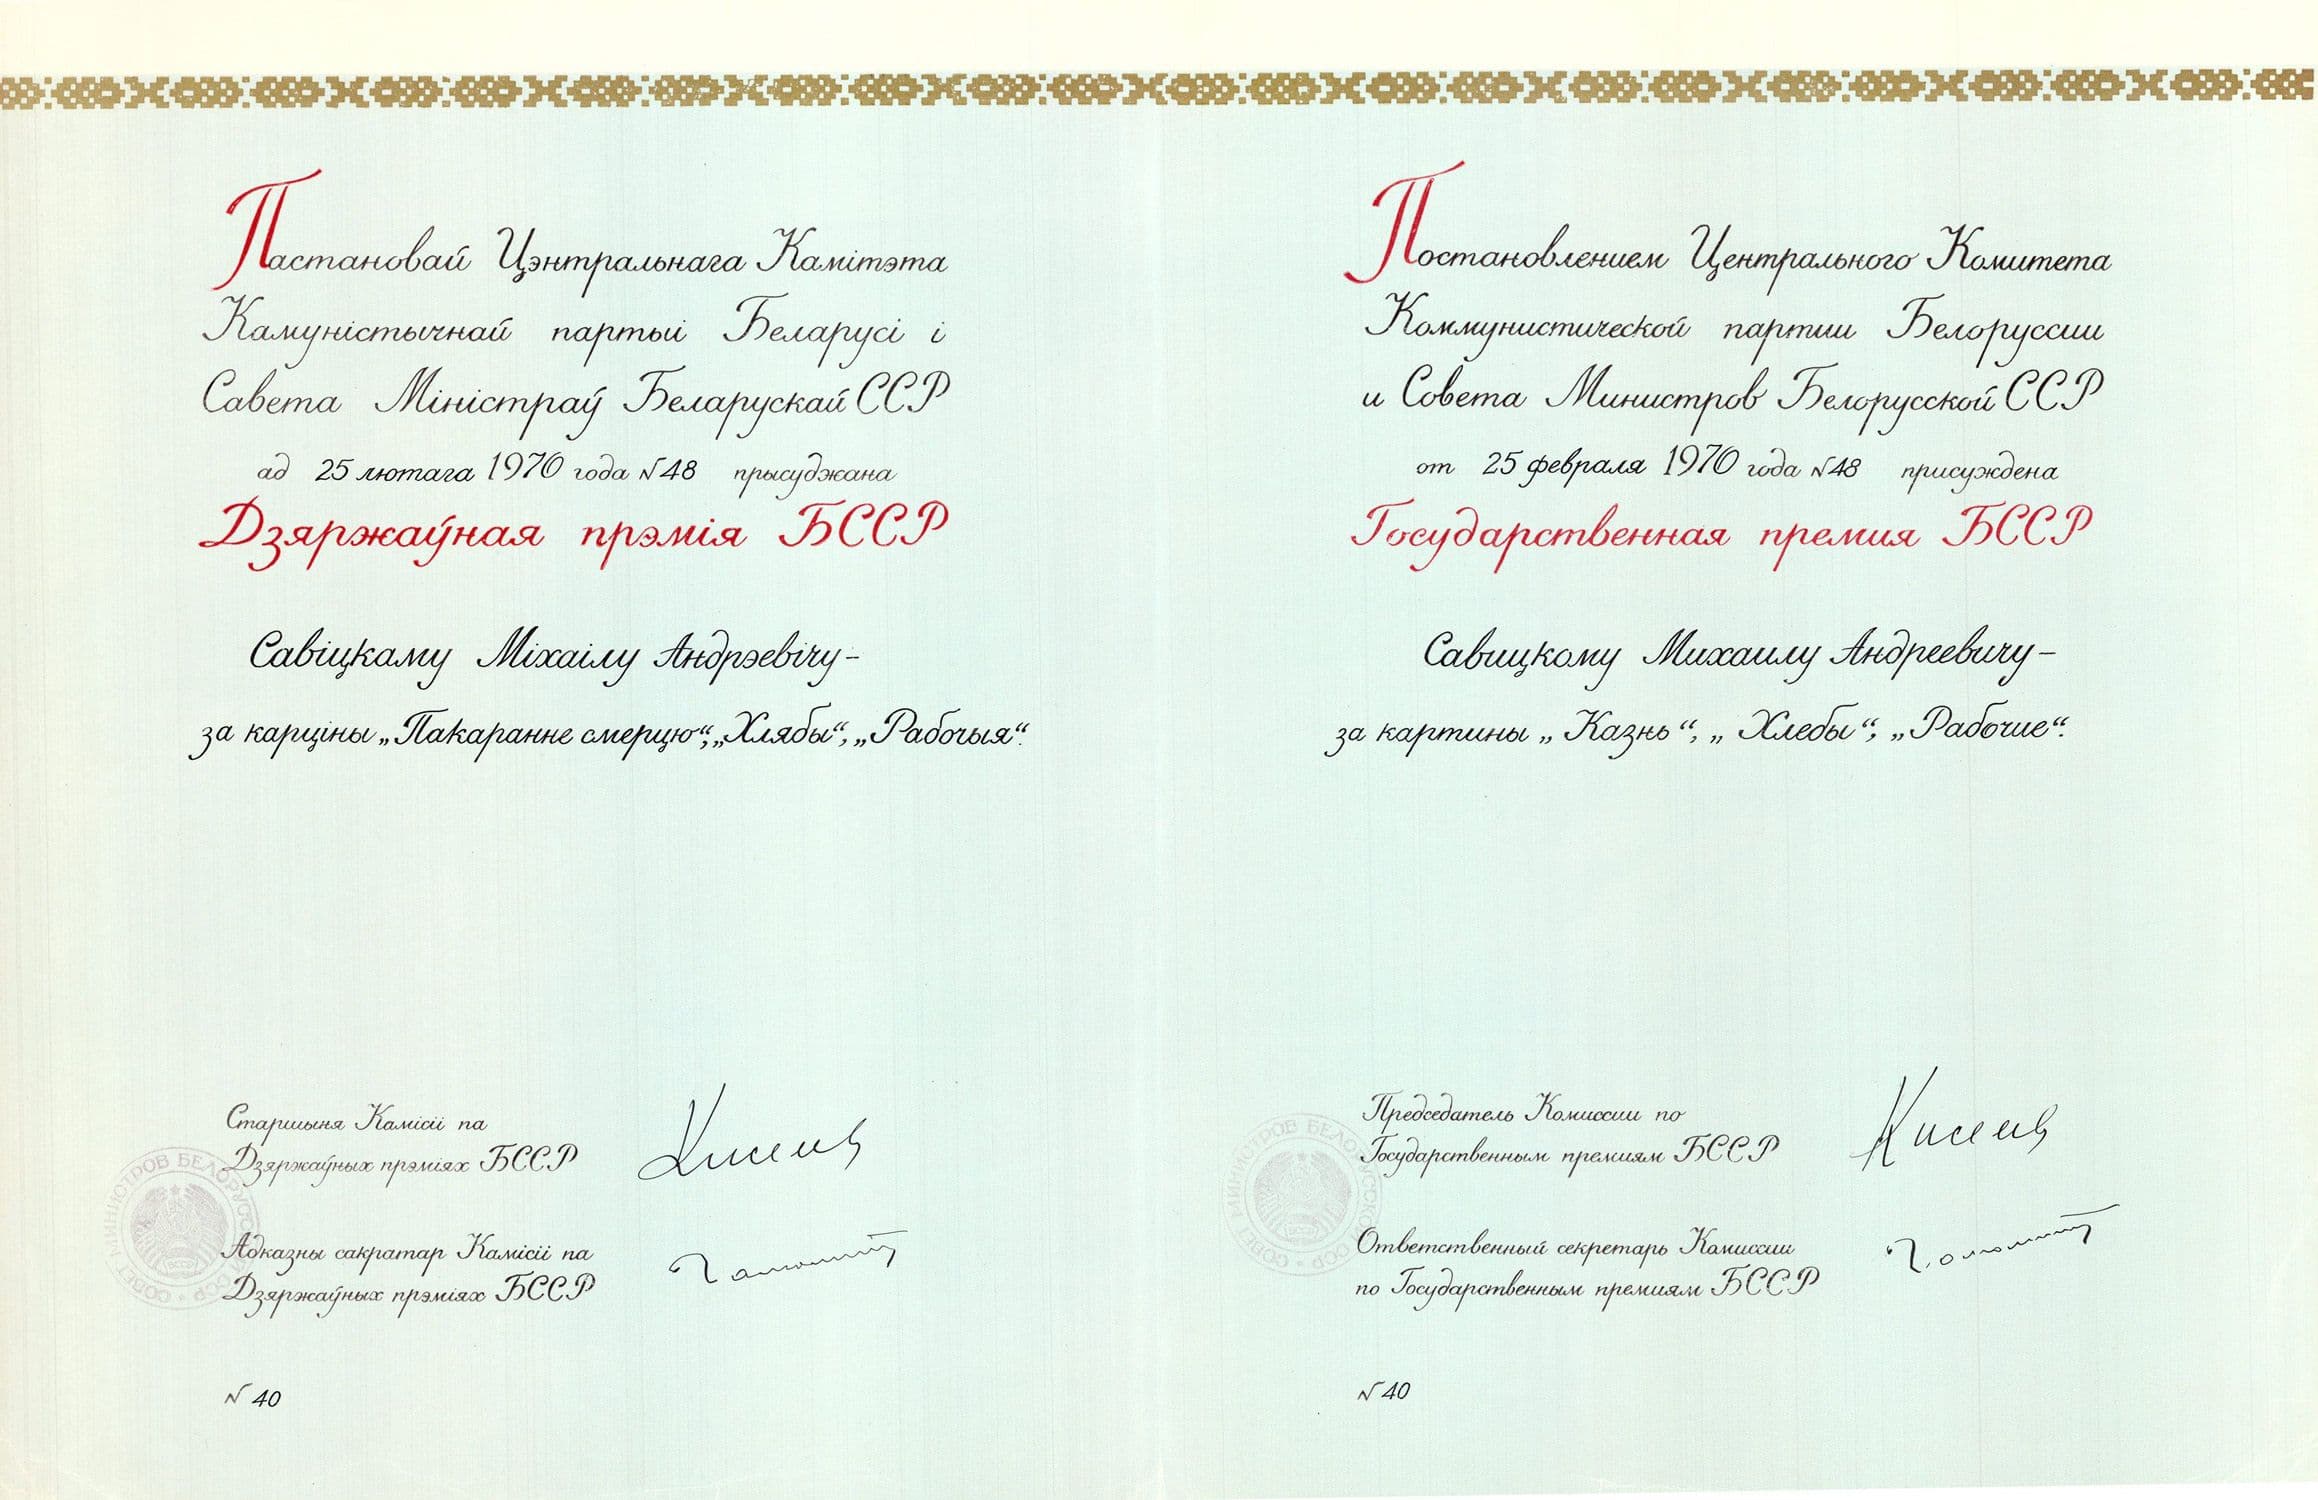 Пастановай Цэнтральнага Камітэта
Камуністычнай партыі Беларусі і
Савета Міністраў Беларускай ССР
ад 25 лютага 1970 года №48 прысуджана
Дзяржаўная прэмія БССР
Савіцкаму Міхаілу Андрэевічу –
за карціны „Пакаранне смерцю“, „Хлябы“, „Рабочыя“.
Старшыня Камісіі па
Дзяржаўных прэміях БССР
Адказны сакратар Камісіі па
Дзяржаўных прэміях БССР
№ 40
СОВЕТ МИНИСТРОВ БЕЛОРУССКОЙ ССР
Постановлением Центрального Комитета
Коммунистической партии Белоруссии
и Совета Министров Белорусской ССР
от 25 февраля 1970 года №48 присуждена
Государственная премия БССР
Савицкому Михаилу Андреевичу –
за картины „Казнь“, „Хлебы“, „Рабочие“.
Председатель Комиссии по
Государственным премиям БССР
Киселев
Ответственный секретарь Комиссии
по Государственным премиям БССР
№ 40
СОВЕТ МИНИСТРОВ БЕЛОРУССКОЙ ССР